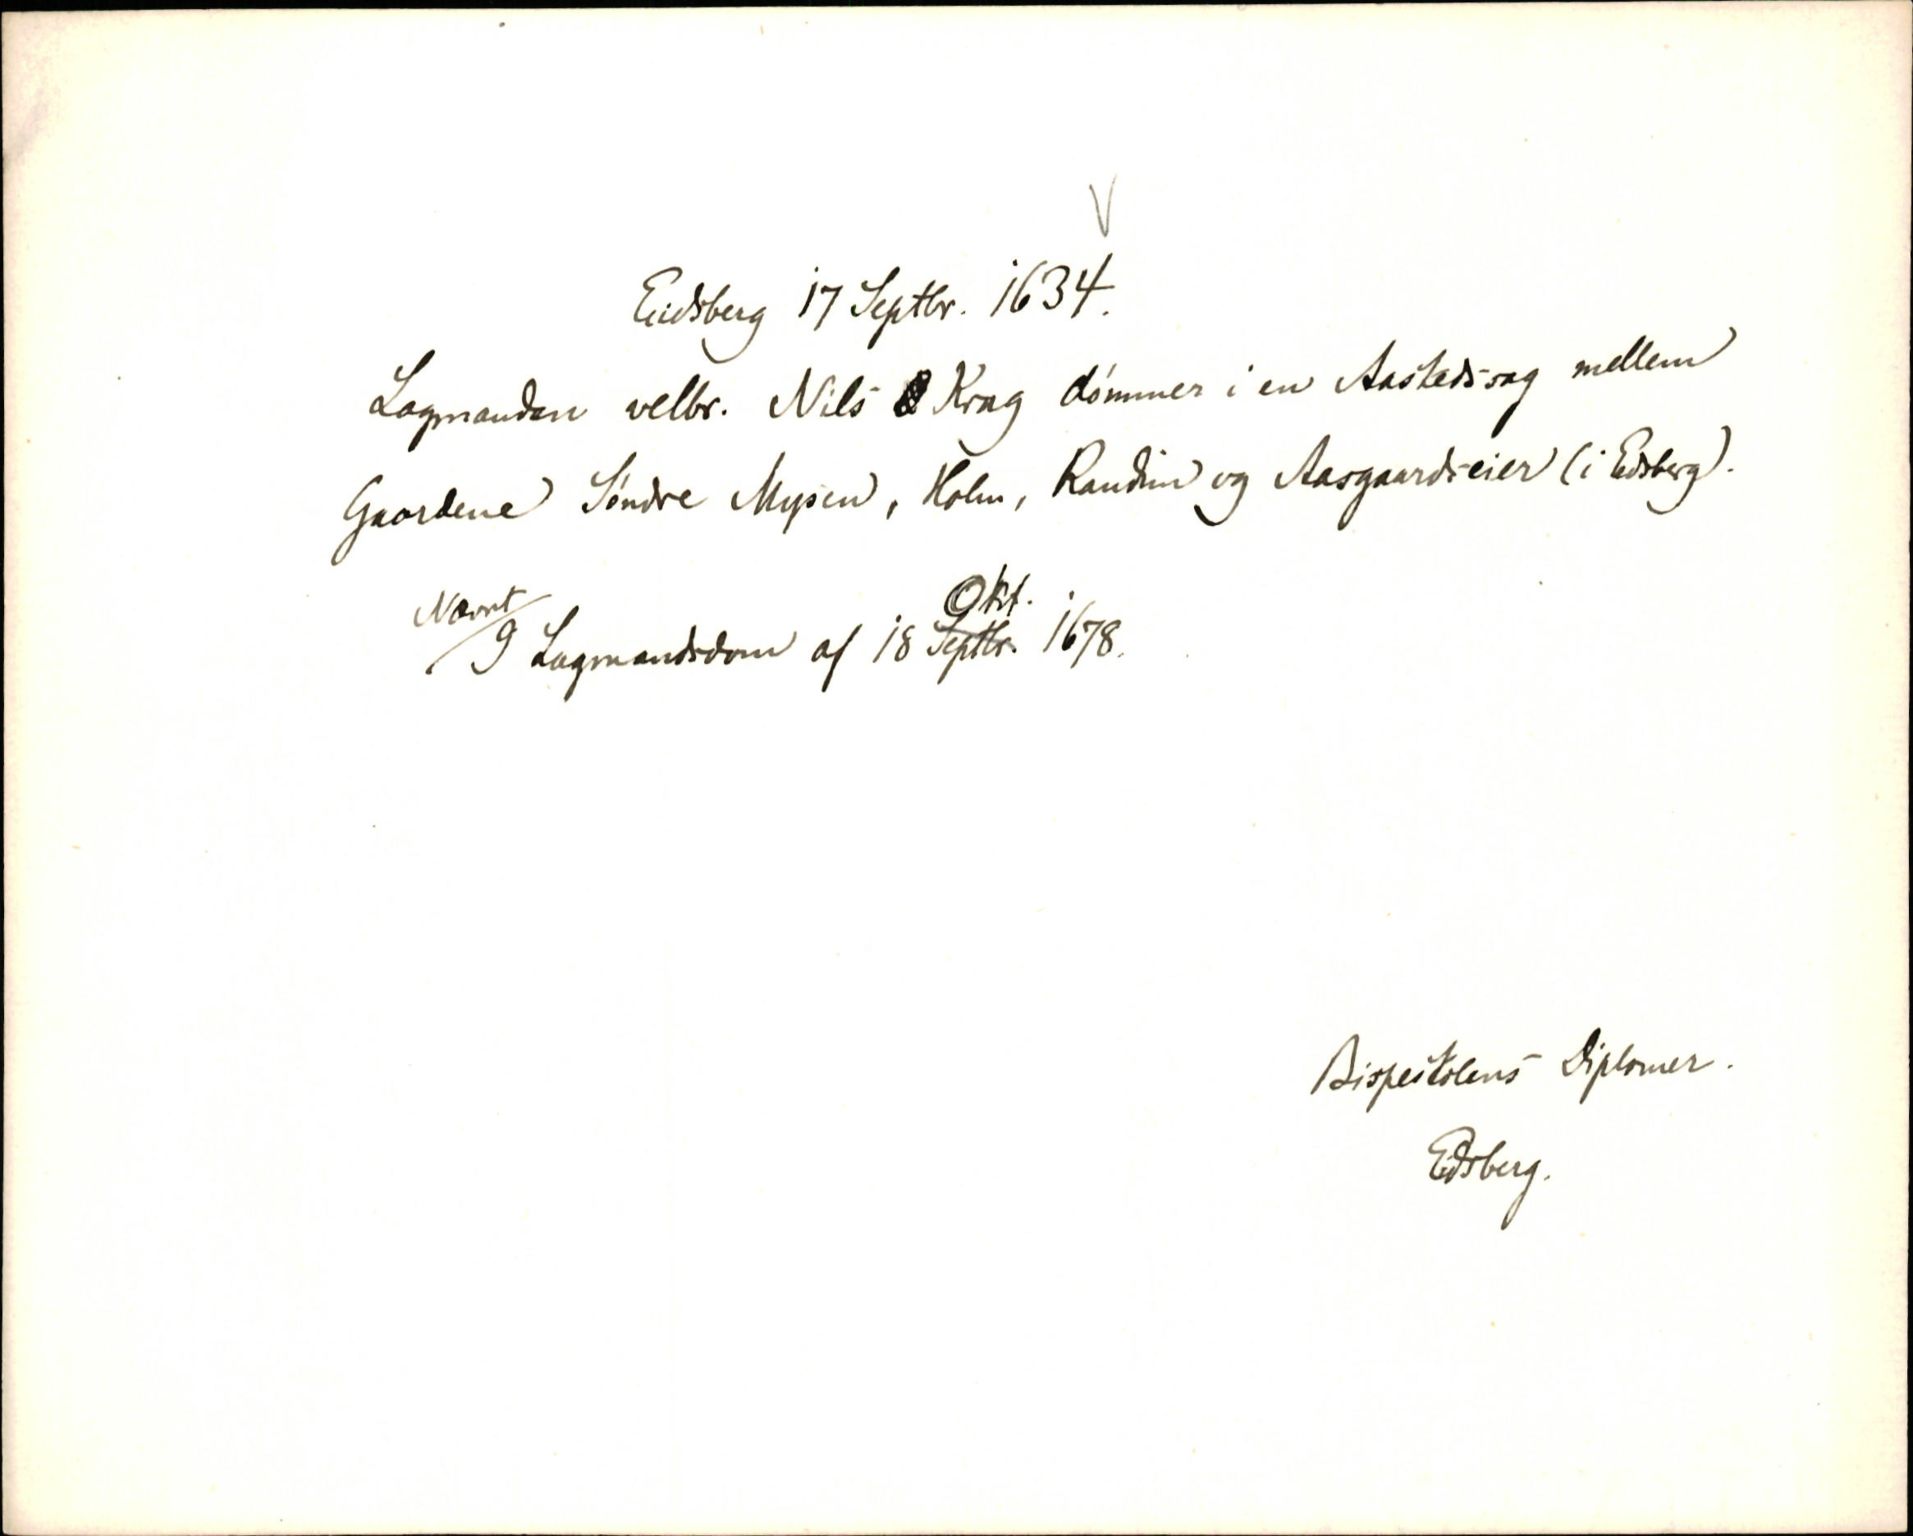 V
Eidsberg 17 Septbr. 1634.
Lagmanden velbr. Nils Krag dømmer i en Aastedssag mellem
Gaardene Søndre Mysen, Holm, Raudim og Aasgaardseier (i Edsberg).
Nævnt Okt.
I Lagmandsdom af 18 Septbr. 1678.
Bispestolens Diplomer.
Edsberg.